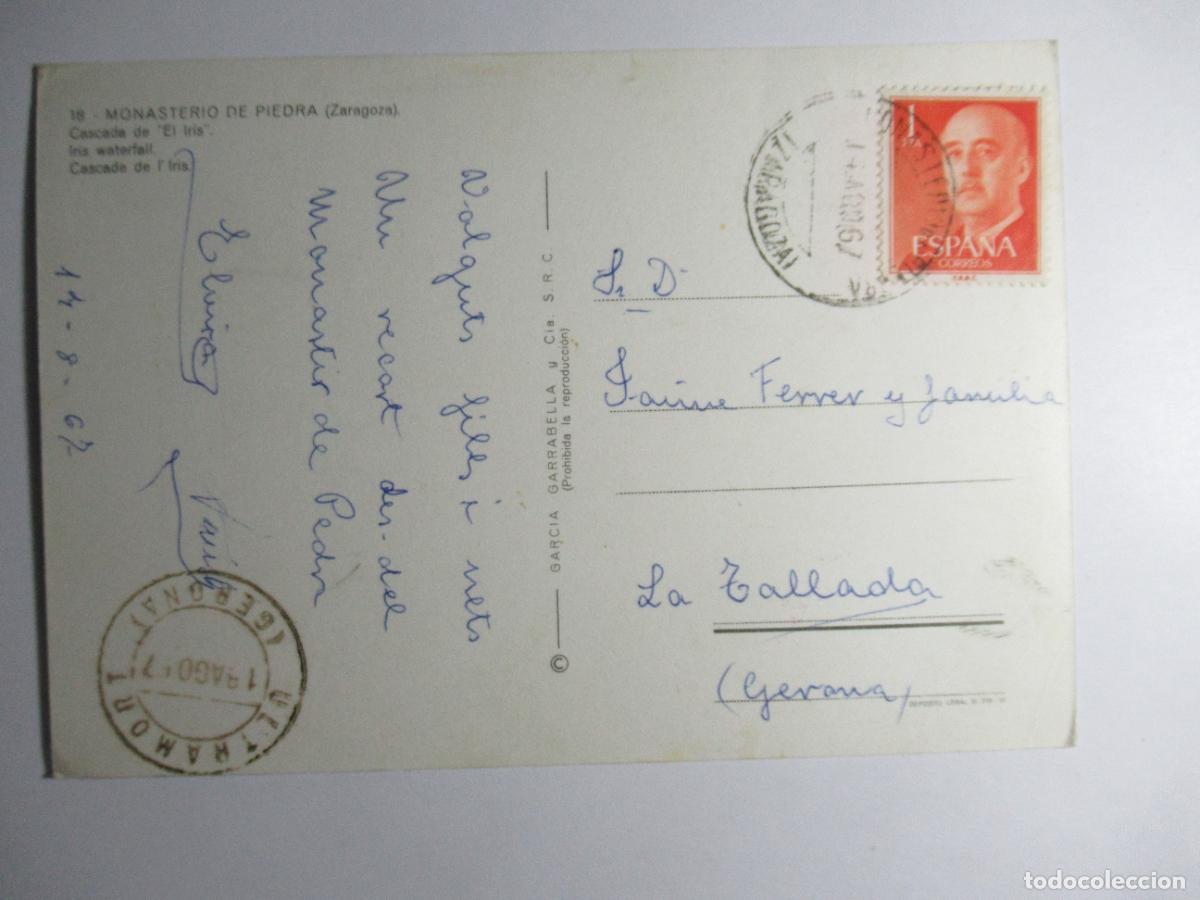 18 - MONASTERIO DE PIEDRA (Zaragoza).
Cascada de "El Iris".
Iris waterfall.
Cascade de l'Iris.
Volguts fills i nets
Un recort des-del
Monastir de Pedra
Elvira
14-8-67
© GARCIA GARRABELLA y Cía. S.R.C.
(Prohibida la reproducción)
1
PTA
ESPAÑA
CORREOS
(ZARAGOZA)
Sr D
Jaime Ferrer y familia
La Tallada
(Gerona)
DEPOSITO LEGAL
ULTRAMORT
(GERONA)
18 AGO 67
todocoleccion